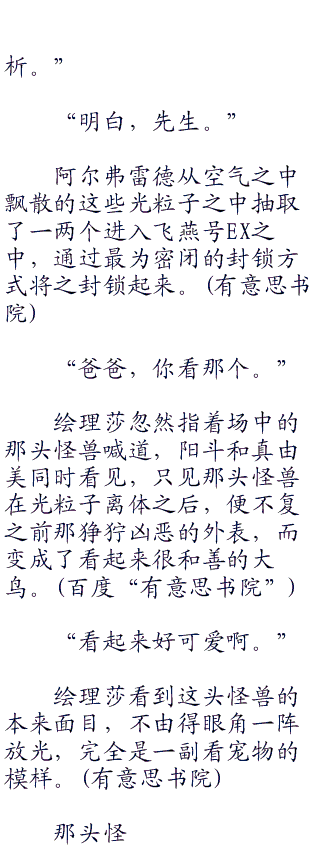 析。”
“明白，先生。”
阿尔弗雷德从空气之中
飘散的这些光粒子之中抽取
了一两个进入飞燕号EX之
中，通过最为密闭的封锁方
式将之封锁起来。(有意思书
院)
“爸爸，你看那个。”
绘理莎忽然指着场中的
那头怪兽喊道，阳斗和真由
美同时看见，只见那头怪兽
在光粒子离体之后，便不复
之前那狰狞凶恶的外表，而
变成了看起来很和善的大
鸟。(百度“有意思书院”)
“看起来好可爱啊。”
绘理莎看到这头怪兽的
本来面目，不由得眼角一阵
放光，完全是一副看宠物的
模样。(有意思书院)
那头怪